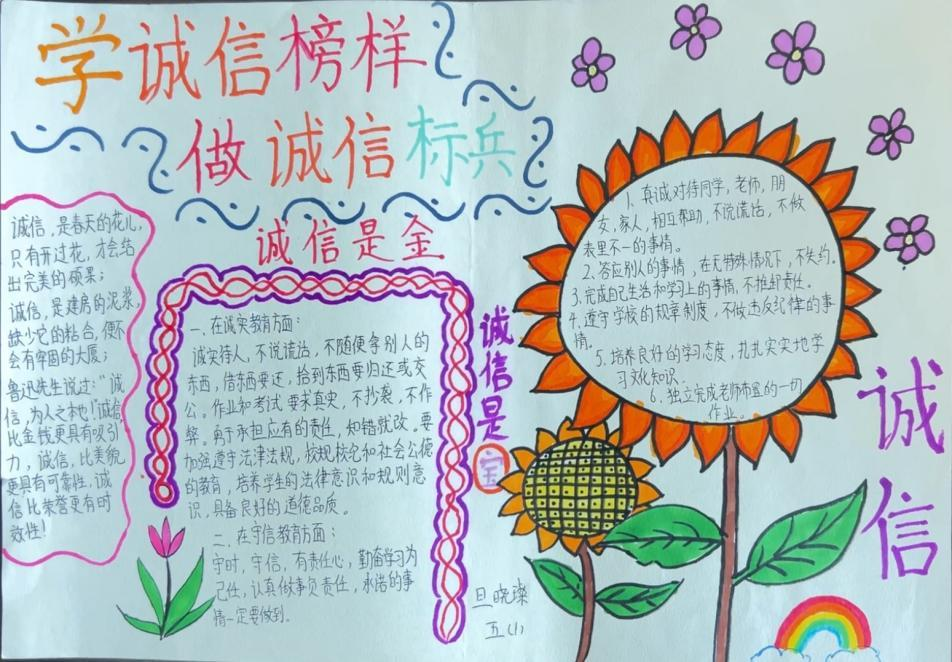 学诚信榜样
做诚信标兵
诚信是金
诚信，是春天的花儿，
只有开过花，才会结
出完美的硕果；
诚信，是建房的泥浆，
缺少它的粘合，便不
会有牢固的大厦；
鲁迅先生说过："诚
信，为人之本也！诚信
比金钱更具有吸引
力，诚信，比美貌
更具有可靠性，诚
信比荣誉更有时
效性！
一、在诚实教育方面：
诚实待人，不说谎话，不随便拿别人的
东西，借东西要还，拾到东西要归还或交
公。作业和考试要求真实，不抄袭，不作
弊。勇于承担应有的责任，知错就改。要
加强遵守法津法规，校规校纪和社会公德
的教育，培养学生的法律意识和规则意
识，具备良好的道德品质。
二、在守信教育方面：
守时，守信，有责任心，勤奋学习为
己任，认真做事负责任，承诺的事
情一定要做到。
诚信是宝
1、真诚对待同学，老师，朋
友，家人，相互帮助，不说谎话，不做
表里不一的事情。
2、答应别人的事情，在无特殊情况下，不失约。
3、完成自己生活和学习上的事情，不推卸责任。
4、遵守学校的规章制度，不做违反纪律的事
情。
5、培养良好的学习态度，扎扎实实地学
习文化知识．
6、独立完成老师布置的一切
作业。
诚信
旦晓璨
五(1)